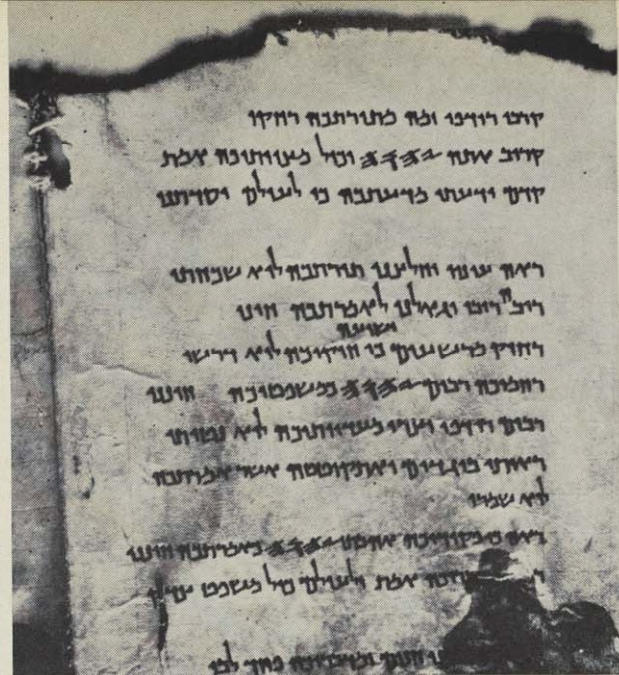 קרבו רודפי זמה מתורתכה רחקו
קרוב אתה 𐤉𐤄𐤅𐤄 וכול מצוותיכה אמת
קדם ידעתי מדעתכה כי לעולם יסדתני
ראה עוני וחלצני תורתכה לוא שכחתי
ריבה ריבי וגאלני לאמרתכה חיני
ישועה
רחוק מרשעים כי חוקיכה לוא דרשו
רחמיכה רבים 𐤉𐤄𐤅𐤄 כמשפטיכה חייני
רבים רודפי וצרי מעדוותיכה לוא נטיתי
ראיתי בוגדים ואתקוטטה אשר אמרתכה
לוא שמרו
פקודיכה אהבתי 𐤉𐤄𐤅𐤄 כאמרתכה חונני
אמת ולעולם כול משפט
חנם ומדבריכה פחד לבי